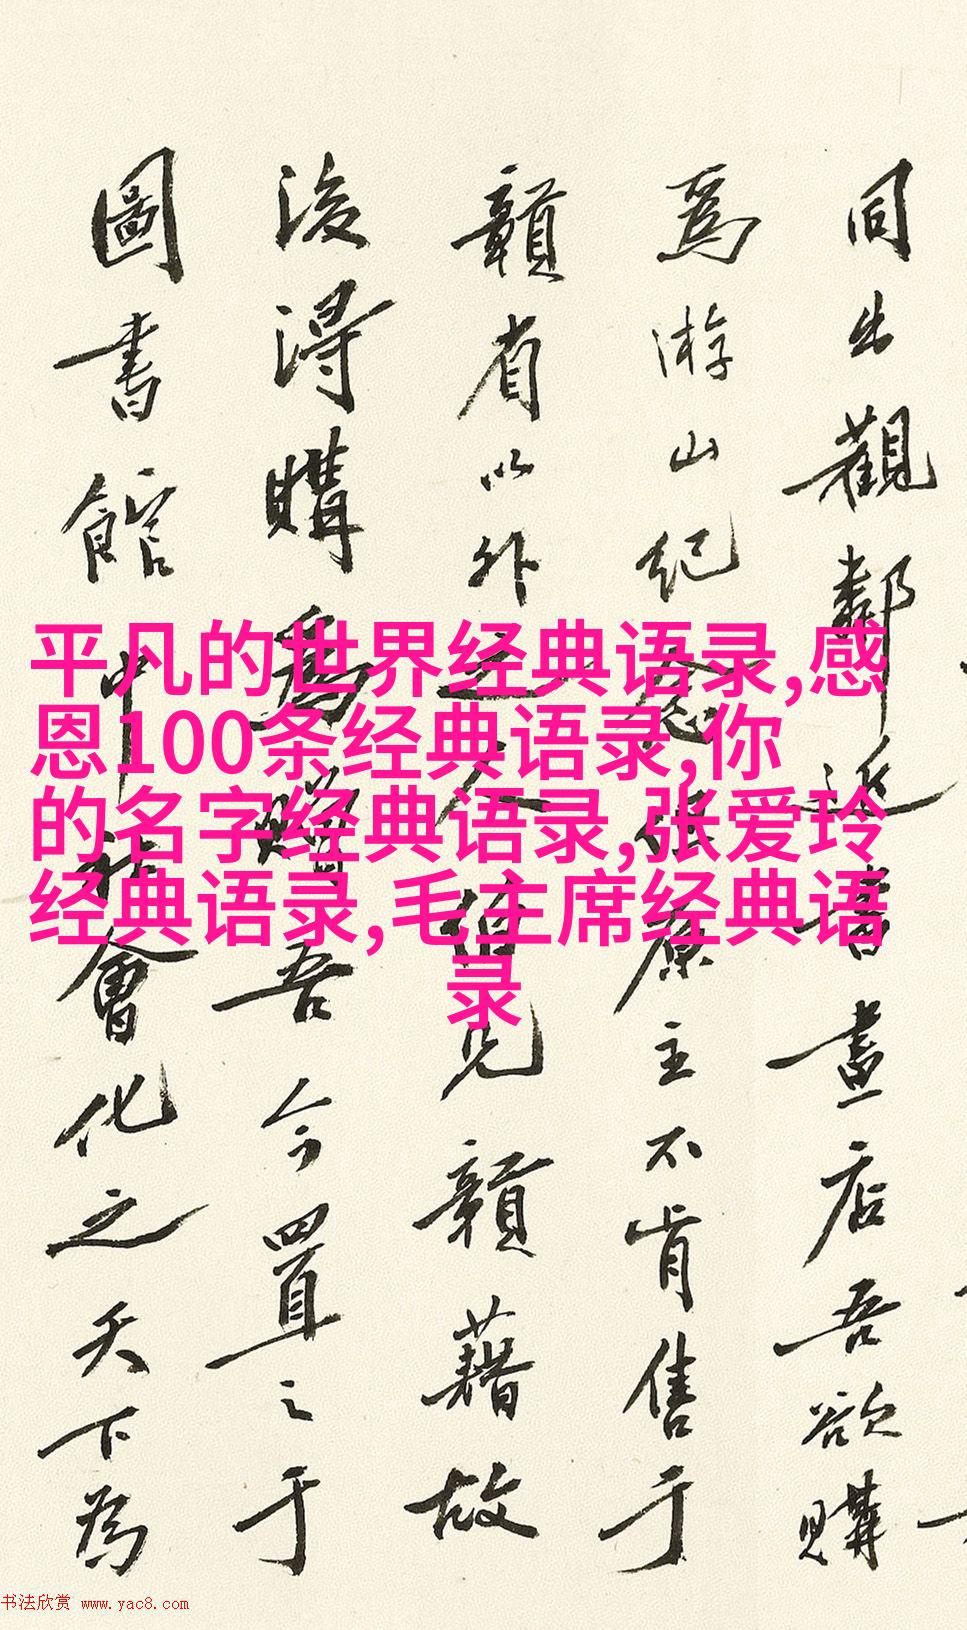 同出觀鄰近書畫店吾欲購
爲游山紀念乃店主不肯售于
贛省以外之人但見贛藉故
後得購爲贈吾今置之于
圖書館中社會化之天下為
平凡的世界经典语录,感
恩100条经典语录,你
的名字经典语录,张爱玲
经典语录,毛主席经典语
录
书法欣赏 www.yac8.com